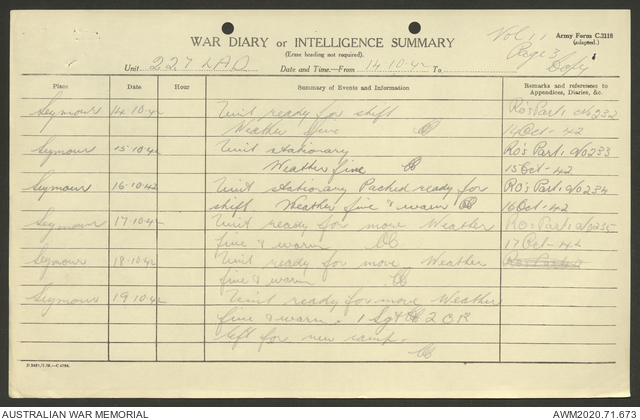 Vol 1
Page 3
Copy
Army Form C.2118
(adapted.)
WAR DIARY or INTELLIGENCE SUMMARY
(Erase heading not required).
Unit 227 LAD Date and Time—From 14.10.42 To
Place Date Hour Summary of Events and Information Remarks and references to Appendices, Diaries, &c.
Seymour 14.10.42 Unit ready for shift RO's Part 1 No 232
Weather fine 14 Oct-42
Seymour 15.10.42 Unit stationary RO's Part 1 No 233
Weather fine 15 Oct-42
Seymour 16.10.42 Unit stationary Packed ready for RO's Part 1 No 234
shift Weather fine & warm 16 Oct-42
Seymour 17.10.42 Unit ready for move Weather RO's Part 1 No 235
fine & warm 17 Oct-42
Seymour 18.10.42 Unit ready for move Weather
fine & warm
Seymour 19.10.42 Unit ready for move Weather
fine & warm. 1 Sgt 2 O.R
left for new camp.
AUSTRALIAN WAR MEMORIAL AWM2020.71.673